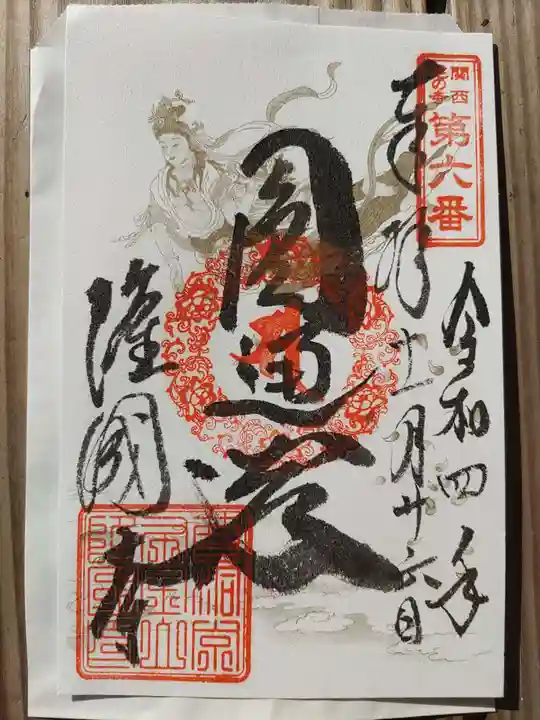 關西
花の寺
第六番
奉拝
令和四年
十一月廿六日
圓通
隆國寺